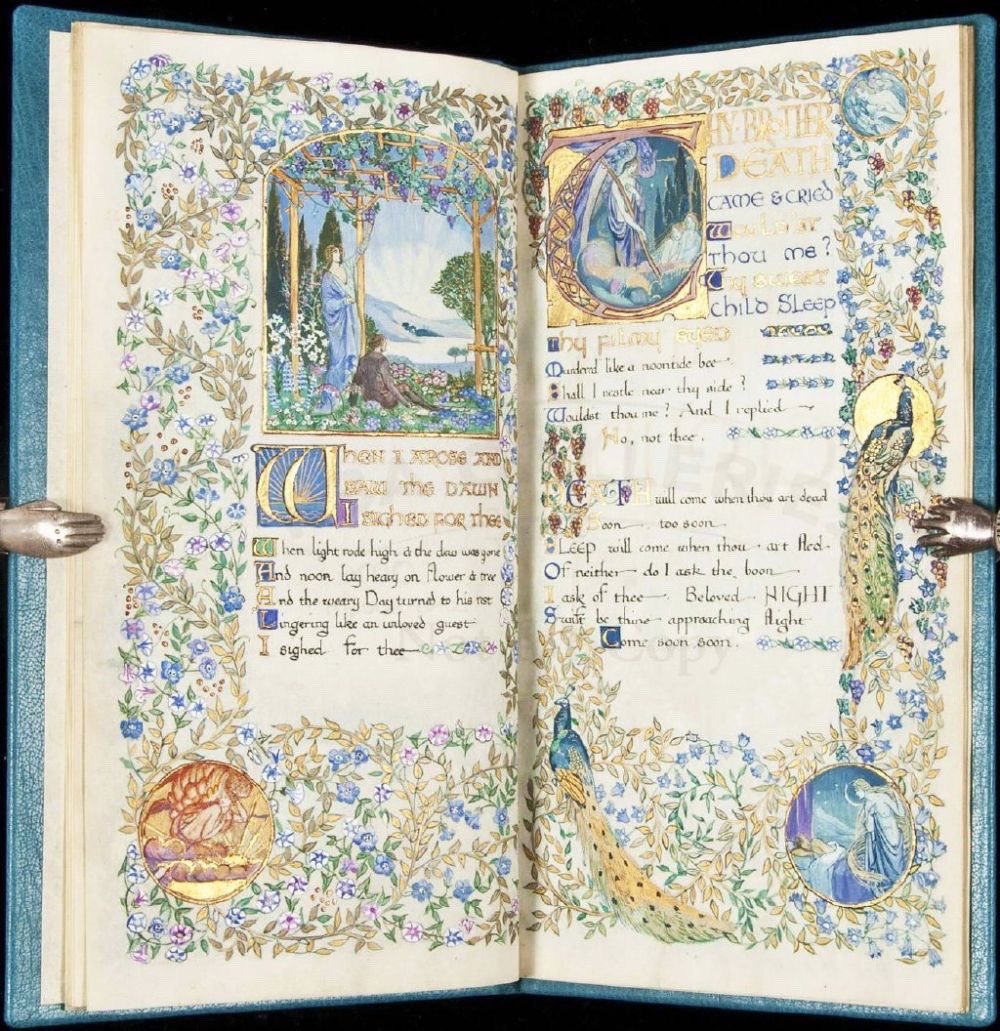 When I arose and
saw the dawn
I sighed for thee
When light rode high & the dew was gone
And noon lay heavy on flower & tree
And the weary Day turned to his rest
Lingering like an unloved guest
I sighed for thee
THY BROTHER
DEATH
CAME & CRIED
Wouldst
thou me?
Thy sweet
child Sleep
Thy filmy eyed
Murmur'd like a noontide bee
Shall I nestle near thy side?
Wouldst thou me? And I replied
No, not thee.
DEATH will come when thou art dead
Soon too soon
SLEEP will come when thou art fled
Of neither do I ask the boon
I ask of thee Beloved NIGHT
Swift be thine approaching flight
Come soon soon.
Copy